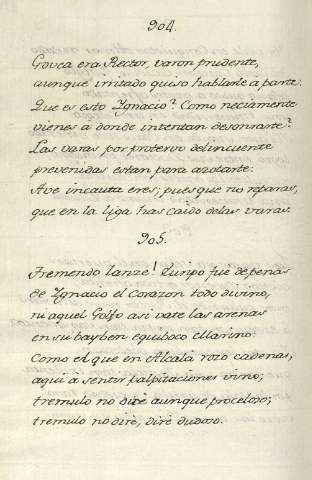 904.
Govea era Rector, varon prudente,
aunque irritado quiso hablarle à parte.
Que es esto Ygnacio? Como neciamente
vienes a donde intentan desonrarte?
Las varas por protervo delincuente
prevenidas estan para azotarte.
Ave incauta eres; pues que no reparas,
que en la liga has caido delas varas.
905.
Tremendo lanze! Euripo fue de penas
de Ygnacio el Corazon todo divino,
ni aquel Golfo asi vate las arenas
en su bayben equiboco Marino.
Como el que en Alcalà rozò cadenas,
aqui à sentir palpitaciones vino;
tremulo no dirè aunque proceloso;
tremulo no dirè, dirè dudoso.